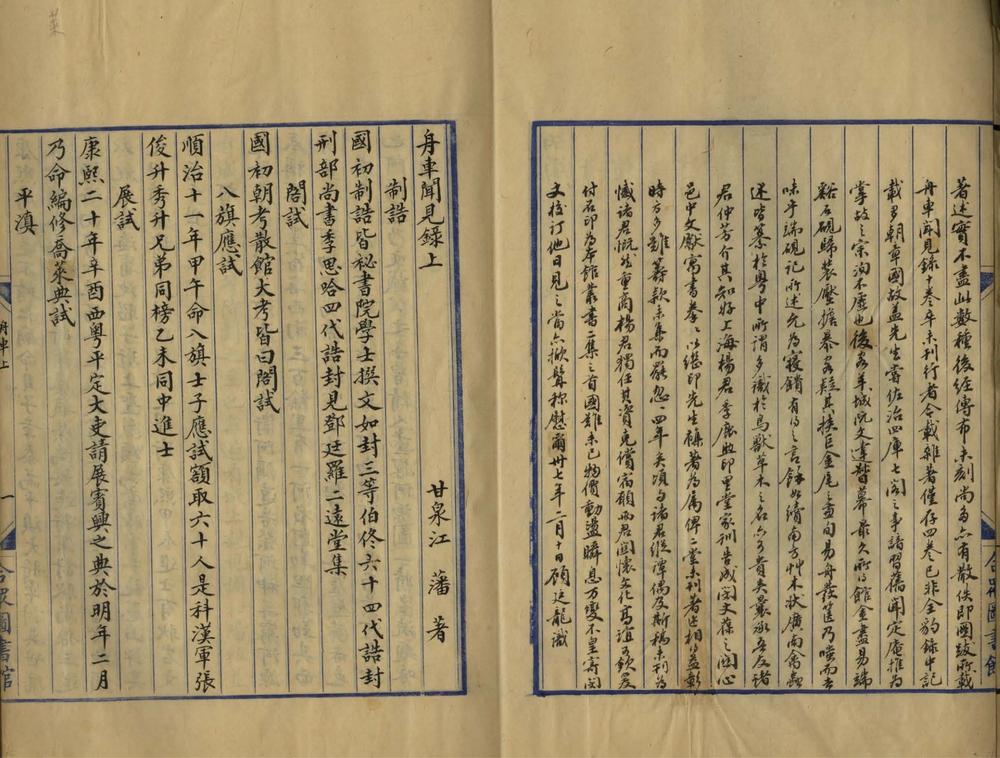 著述實不盡此數種後經傳布未刻尚多亦有散佚即國跋所載
舟車聞見錄十卷卒未刊行者今載雜著僅存四卷已非全豹錄中記
載多朝章國故蓋先生嘗佐治四庫七閣之事諸習舊聞定庵推為
掌故之宗洵不虛也後客羊城阮文達督幕最久所得館金盡易端
谿石硯歸裝壓擔暴客疑其挾巨金尾之畫間易舟發篋乃嗤而去
味乎端硯記所述允為寢饋有得之言餘如續南方艸木狀廣南禽蟲
述皆纂於粵中所謂多識於鳥獸草木之名亦可貴矣曩承吾友諸
君仲芳介其知好上海楊君季鹿興印里堂家訓告成閔文葆之關心
邑中文獻寓書拳拳以繼印先生雜著為屬俾二堂未刊者迭相得益彰
時方多難籌款未集而罷忽忽四年矣頃與諸君縱譚偶及斯稿未刊為
憾諸君慨然重商楊君獨任其資克償宿願兩君關懷文化高誼可欽爰
付石印為本館叢書二集之首國難未已物價動盪瞬息萬變不皇寄閔
文校訂他日見之當亦掀髯稱慰爾卅七年二月十日顧廷龍識
合眾圖書館
舟車聞見錄上
甘泉江藩著
制誥
國初制誥皆秘書院學士撰文如封三等伯佟六十四代誥封
刑部尚書季思哈四代誥封見鄧廷羅二遠堂集
閣試
國初朝考散館大考皆曰閣試
八旗應試
順治十一年甲午命八旗士子應試額取六十人是科漢軍張
俊升秀升兄弟同榜乙未同中進士
展試
康熙二十年辛酉西粵平定大吏請展賓興之典於明年二月
乃命編修喬萊典試
平滇
舟車上
一
合眾圖書館